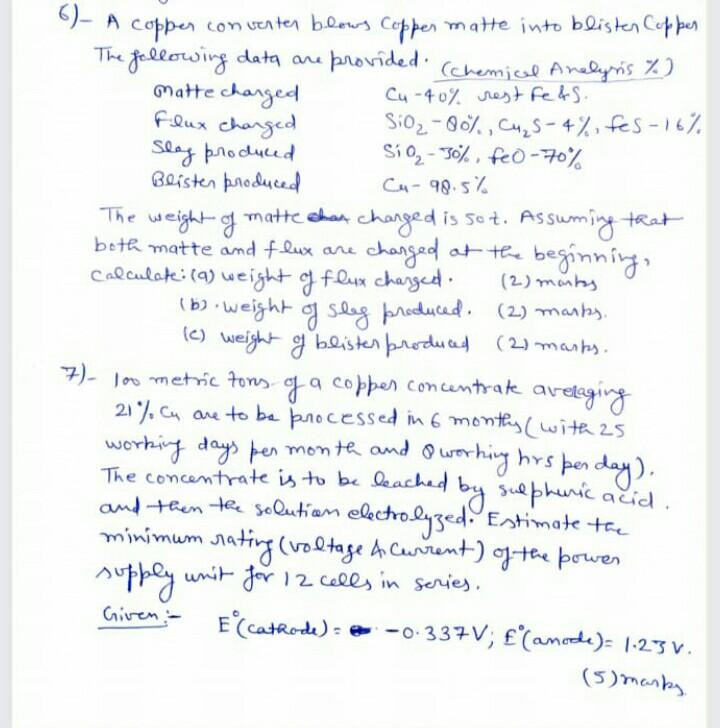 6)- A copper converter blows Copper matte into blister Copper
The following data are provided. (chemical Analysis %)
matte charged Cu -40% rest Fe & S.
Flux charged SiO2 -80%, Cu2S - 4%, FeS - 16%
Slag produced SiO2 - 30%, FeO - 70%
Blister produced Cu - 98.5%
The weight of matte charged is 50 t. Assuming that
both matte and flux are charged at the beginning,
Calculate: (a) weight of flux charged. (2) marks
(b). weight of slag produced. (2) marks.
(c) weight of blister produced (2) marks.
7)- 100 metric tons of a copper concentrate averaging
21% Cu are to be processed in 6 months (with 25
working days per month and 8 working hrs per day).
The concentrate is to be leached by sulphuric acid.
and then the solution electrolyzed. Estimate the
minimum rating (voltage & current) of the power
supply unit for 12 cells in series.
Given:- E°(cathode) = -0.337V; E°(anode) = 1.23 V.
(5) marks